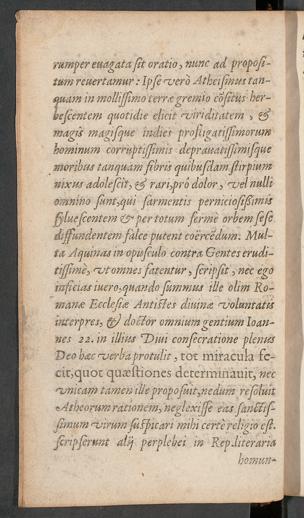 rumper euagata sit oratio, nunc ad proposi-
tum reuertamur: Ipse verò Atheismus tan-
quam in mollissimo terræ gremio cōsitus her-
bescentem quotidie elicit viriditatem, &
magis magisque indies profligatissimorum
hominum corruptissimis deprauatissimisque
moribus tanquam fibris quibusdam stirpium
nixus adolescit, & rari, prò dolor, vel nulli
omnino sunt, qui sarmentis perniciosissimis
siluescentem & per totum fermè orbem sese
diffundentem falce putent coërcēdum. Mul-
ta Aquinas in opusculo contra Gentes erudi-
tissimè, vt omnes fatentur, scripsit, nec ego
inficias iuero, quando summus ille olim Ro-
manæ Ecclesiæ Antistes diuinæ voluntatis
interpres, & doctor omnium gentium Ioan-
nes 22. in illius Diui consecratione plenus
Deo hæc verba protulit, tot miracula fe-
cit, quot quæstiones determinauit, nec
vnicam tamen ille proposuit, nedum resoluit
Atheorum rationem, neglexisse eas sanctis-
simum virum suspicari mihi certè religio est.
scripserunt alij perplebei in Rep. literaria
homun-